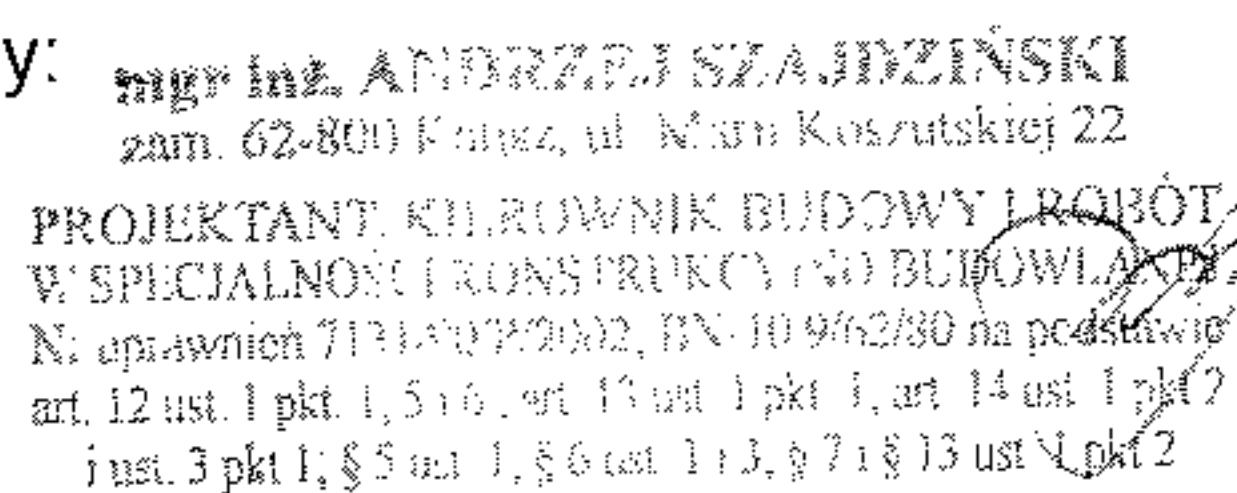 y:
mgr inż. ANDRZEJ SZAJDZIŃSKI
zam. 62-800 Kalisz, ul. Koszutskiej 22
PROJEKTANT, KIEROWNIK BUDOWY I ROBÓT
W SPECJALNOŚCI KONSTRUKCYJNO BUDOWLANEJ
Nr uprawnień BN-10.9/62/80 na podstawie
art. 12 ust. 1 pkt. 1, 5 i 6, art. 13 ust. 1 pkt 1, art. 14 ust. 1 pkt 2
i ust. 3 pkt 1, § 5 ust 1, § 6 ust. 1 i 3, § 7 i § 13 ust 1 pkt 2